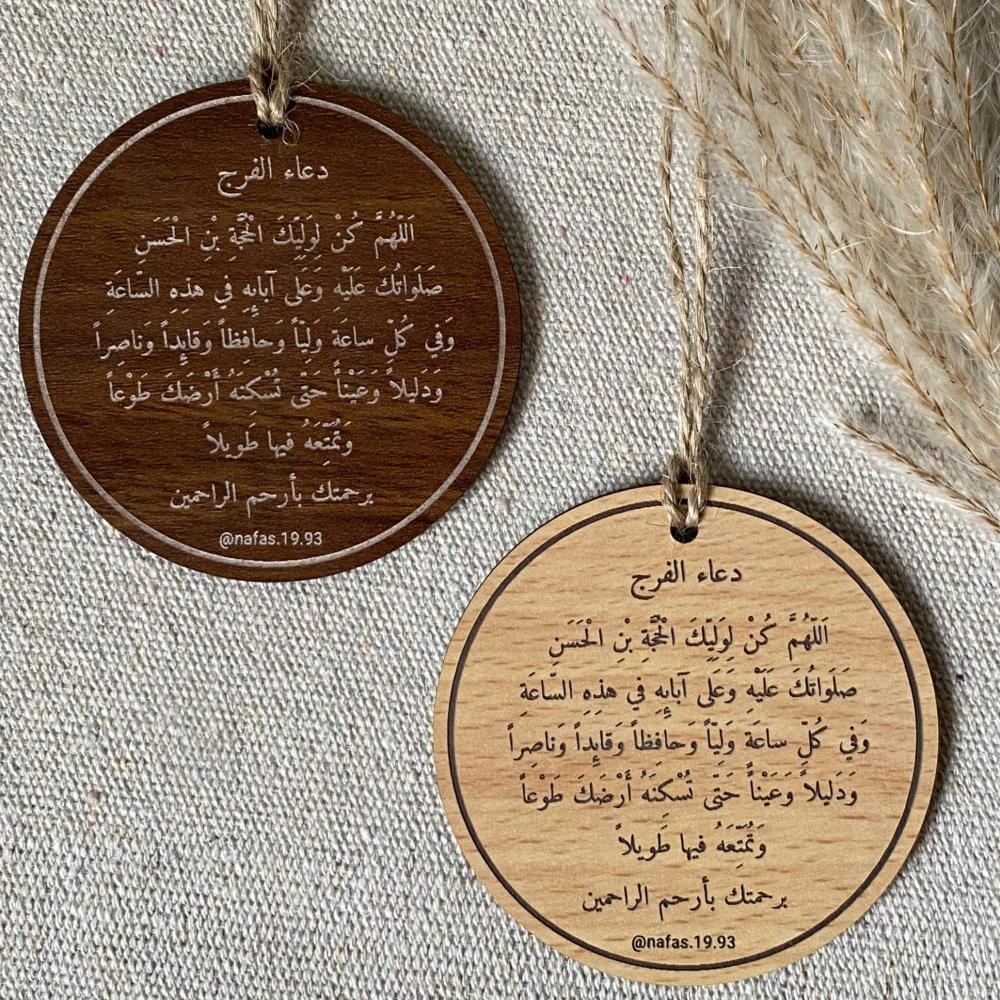 دعاء الفرج
اَللّهُمَّ كُنْ لِوَلِيِّكَ الْحُجَّةِ بْنِ الْحَسَنِ
صَلَواتُكَ عَلَيْهِ وَعَلى آبائِهِ في هذِهِ السّاعَةِ
وَفي كُلِّ ساعَة وَلِيّاً وَحافِظاً وَقائِداً وَناصِراً
وَدَليلاً وَعَيْناً حَتّى تُسْكِنَهُ أَرْضَكَ طَوْعاً
وَتُمَتِّعَهُ فيها طَويلاً
برحمتك بأرحم الراحمين
@nafas.19.93
دعاء الفرج
اَللّهُمَّ كُنْ لِوَلِيِّكَ الْحُجَّةِ بْنِ الْحَسَنِ
صَلَواتُكَ عَلَيْهِ وَعَلى آبائِهِ في هذِهِ السّاعَةِ
وَفي كُلِّ ساعَة وَلِيّاً وَحافِظاً وَقائِداً وَناصِراً
وَدَليلاً وَعَيْناً حَتّى تُسْكِنَهُ أَرْضَكَ طَوْعاً
وَتُمَتِّعَهُ فيها طَويلاً
برحمتك بأرحم الراحمين
@nafas.19.93